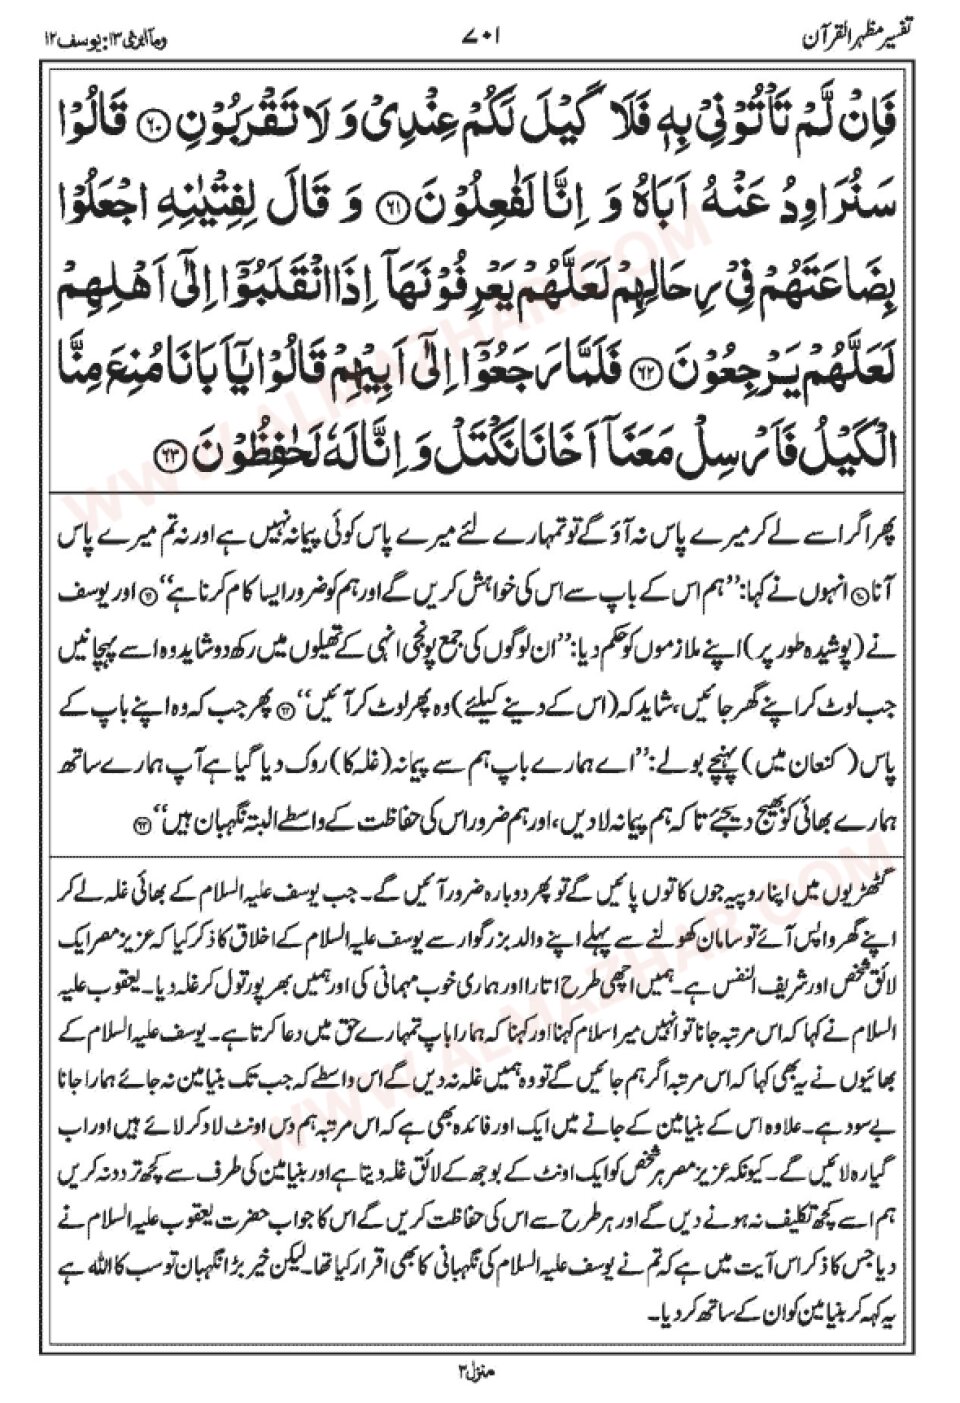 تفسیر مظہر القرآن
۷۰۱
وماابرئ ۱۳: یوسف ۱۲
فَاِنْ لَّمْ تَاْتُوْنِیْ بِهٖ فَلَا كَیْلَ لَكُمْ عِنْدِیْ وَ لَا تَقْرَبُوْنِ ۶۰ قَالُوْا
سَنُرَاوِدُ عَنْهُ اَبَاهُ وَ اِنَّا لَفٰعِلُوْنَ ۶۱ وَ قَالَ لِفِتْیٰنِهِ اجْعَلُوْا
بِضَاعَتَهُمْ فِیْ رِحَالِهِمْ لَعَلَّهُمْ یَعْرِفُوْنَهَاۤ اِذَا انْقَلَبُوْۤا اِلٰۤی اَهْلِهِمْ
لَعَلَّهُمْ یَرْجِعُوْنَ ۶۲ فَلَمَّا رَجَعُوْۤا اِلٰۤی اَبِیْهِمْ قَالُوْا یٰۤاَبَانَا مُنِعَ مِنَّا
الْكَیْلُ فَاَرْسِلْ مَعَنَاۤ اَخَانَا نَكْتَلْ وَ اِنَّا لَهٗ لَحٰفِظُوْنَ ۶۳
پھر اگر اسے لے کر میرے پاس نہ آؤ گے تو تمہارے لئے میرے پاس کوئی پیمانہ نہیں ہے اور نہ تم میرے پاس
آنا ۶۰ انہوں نے کہا: ’’ہم اس کے باپ سے اس کی خواہش کریں گے اور ہم کو ضرور ایسا کام کرنا ہے‘‘ ۶۱ اور یوسف
نے (پوشیدہ طور پر) اپنے ملازموں کو حکم دیا: ’’ان لوگوں کی جمع پونجی انہی کے تھیلوں میں رکھ دو شاید وہ اسے پہچانیں
جب لوٹ کر اپنے گھر جائیں، شاید کہ (اس کے دینے کیلئے) وہ پھر لوٹ کر آئیں‘‘ ۶۲ پھر جب کہ وہ اپنے باپ کے
پاس (کنعان میں) پہنچے بولے: ’’اے ہمارے باپ ہم سے پیمانہ (غلہ کا) روک دیا گیا ہے آپ ہمارے ساتھ
ہمارے بھائی کو بھیج دیجئے تا کہ ہم پیمانہ لادیں، اور ہم ضرور اس کی حفاظت کے واسطے البتہ نگہبان ہیں‘‘ ۶۳
گٹھڑیوں میں اپنا روپیہ جوں کا توں پائیں گے تو پھر دوبارہ ضرور آئیں گے۔ جب یوسف علیہ السلام کے بھائی غلہ لے کر
اپنے گھر واپس آئے تو سامان کھولنے سے پہلے اپنے والد بزرگوار سے یوسف علیہ السلام کے اخلاق کا ذکر کیا کہ عزیز مصر ایک
لائق شخص اور شریف النفس ہے۔ ہمیں اچھی طرح اتارا اور ہماری خوب مہمانی کی اور ہمیں بھر پور تول کر غلہ دیا۔ یعقوب علیہ
السلام نے کہا کہ اس مرتبہ جانا تو انہیں میرا سلام کہنا اور کہنا کہ ہمارا باپ تمہارے حق میں دعا کرتا ہے۔ یوسف علیہ السلام کے
بھائیوں نے یہ بھی کہا کہ اس مرتبہ اگر ہم جائیں گے تو وہ ہمیں غلہ نہ دیں گے اس واسطے کہ جب تک بنیامین نہ جائے ہمارا جانا
بے سود ہے۔ علاوہ اس کے بنیامین کے جانے میں ایک اور فائدہ بھی ہے کہ اس مرتبہ ہم دس اونٹ لاد کر لائے ہیں اور اب
گیارہ لائیں گے۔ کیونکہ عزیز مصر ہر شخص کو ایک اونٹ کے بوجھ کے لائق غلہ دیتا ہے اور بنیامین کی طرف سے کچھ تردد نہ کریں
ہم اسے کچھ تکلیف نہ ہونے دیں گے اور ہر طرح سے اس کی حفاظت کریں گے اس کا جواب حضرت یعقوب علیہ السلام نے
دیا جس کا ذکر اس آیت میں ہے کہ تم نے یوسف علیہ السلام کی نگہبانی کا بھی اقرار کیا تھا۔ لیکن خیر بڑا نگہبان تو سب کا اللہ ہے
یہ کہہ کر بنیامین کو ان کے ساتھ کر دیا۔
منزل ۳
WWW.ALMAZHAR.COM
WWW.ALMAZHAR.COM